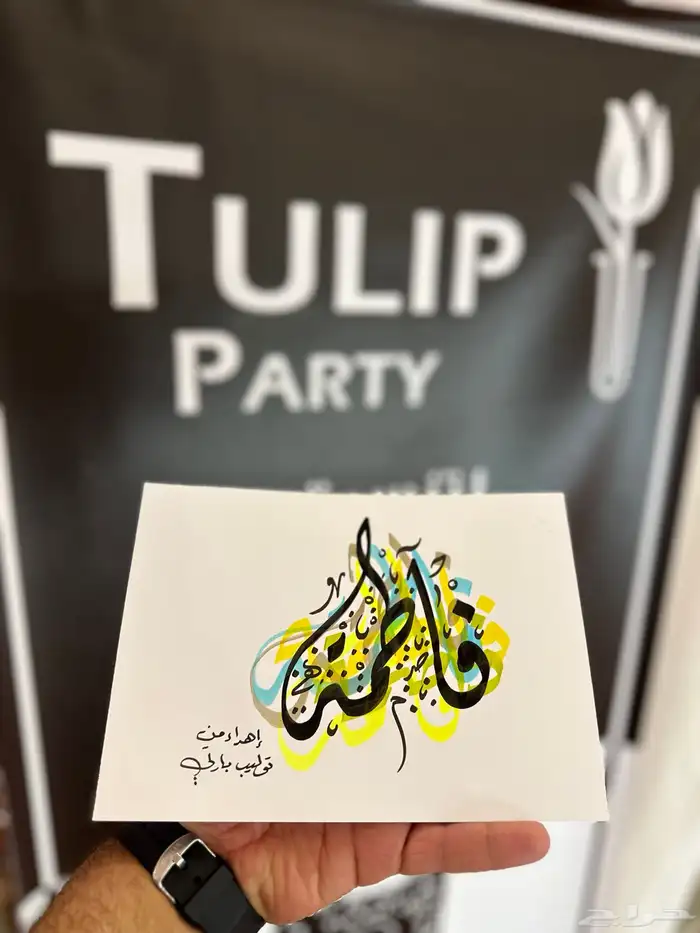 TULIP
PARTY
فاطمة
إهداء من
توليب بارتي
حراج